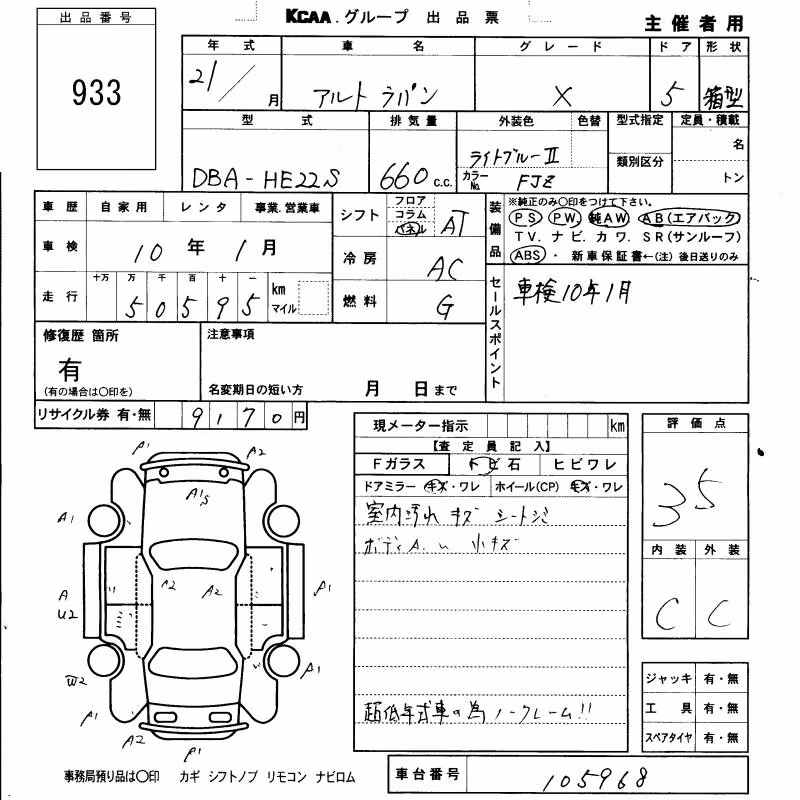 出品番号
KCAA.グループ 出品票
主催者用
933
年式 車名 グレード ドア 形状
21/月 アルト ラパン X 5 箱型
型式 排気量 外装色 色替 型式指定 定員・積載
DBA-HE22S 660c.c. ライトブルーⅡ 名
カラーNo. FJZ 類別区分 トン
車歴 自家用 レンタ 事業.営業車
車検 10年1月
走行 十万 万 千 百 十 一
50595 km マイル
シフト フロア コラム パネル AT
冷房 AC
燃料 G
装備品
※純正のみ○印をつけて下さい。
PS PW 純AW AB(エアバック)
TV. ナビ. カワ. SR(サンルーフ)
ABS・ 新車保証書←(注) 後日送りのみ
セールスポイント
車検10年1月
修復歴 箇所
有
(有の場合は○印を)
注意事項
名変期日の短い方 月 日まで
リサイクル券 有・無 9170円
現メーター指示 km
【査定員記入】
Fガラス トビ石 ヒビワレ
ドアミラー キズ・ワレ ホイール(CP) キズ・ワレ
室内汚れ キズ シートジミ
ボディA. 小キズ
超低年式車の為ノークレーム!!
評価点
35
内装 外装
C C
ジャッキ 有・無
工具 有・無
スペアタイヤ 有・無
A1 A2
A1S
A1
A2 A2
A
U2
A1
W2 A1
A1
A2
A1
事務局預り品は○印 カギ シフトノブ リモコン ナビロム
車台番号 105968